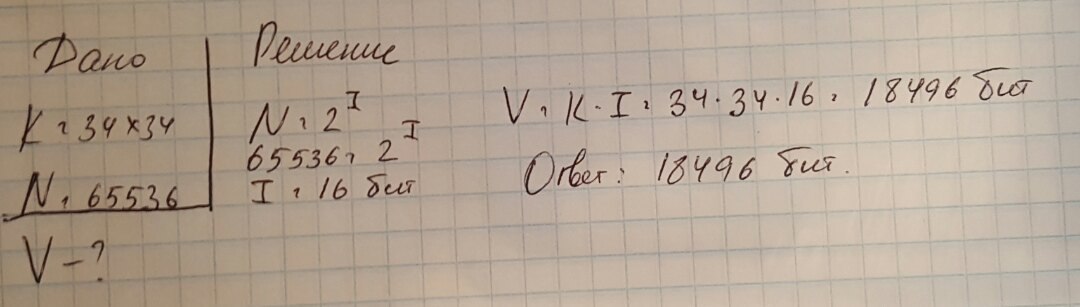 Дано
K = 34 × 34
N = 65536
V - ?
Решение
N = 2^I
65536 = 2^I
I = 16 бит
V = K · I = 34 · 34 · 16 = 18496 бит
Ответ: 18496 бит.